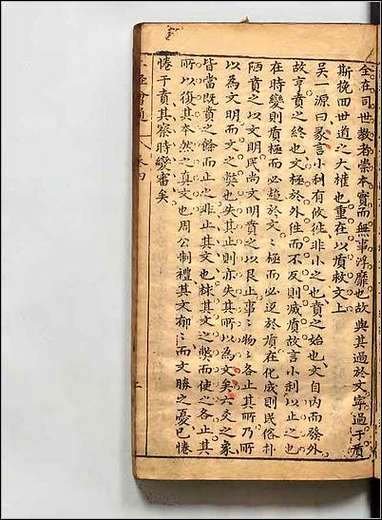 全在司世教者崇本實而無事浮靡也故與其過於文寧過于質
斯挽回世道之大權也重在以質救文上
吳一源曰彖言小利有攸徃非小之也賁之始也文自內而發外
故亨賁之終也文極於外徃而不反則滅質故言小利以止之也
在時變則質極而必趨於文〻極而必返於質在化成則民俗朴
陋賁之以文明民尚文明賁之以艮止事〻物〻各止其所乃所
以為文明而文之獘也失其止則亦失其所以為文矣六爻之象
皆當既賁之餘而止之非止其文也救其文之獘而使之各止其
所以復其本然之真文也周公制禮其文郁〻而文勝之憂已惓
惓于賁其察時變審矣